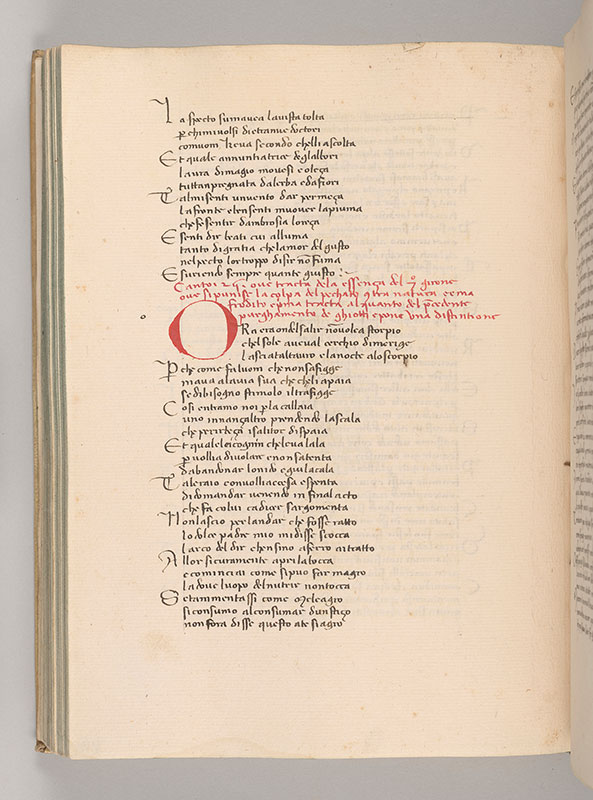 La specto suo mavea la vista tolta
p chi mi volsi dietro mie doctori
com uom che va secondo chelli ascolta
Et quale annuntiatrice deglalbori
laura di magio movesi e oleça
tutta inpregnata da lerba e da fiori
Tal mi senti un vento dar per meça
la fronte e ben senti muover la piuma
che fe sentir dambrosia loreça
E senti dir beati cui alluma
tanto di gratia che lamor del gusto
nel pecto lor troppo disir nō fuma
Esuriendo sempre quante giusto
ove tracta de la essença del girone
ove si punisce la colpa del pechato contra natura
e prima tracta alquanto del precedente
purghamento de ghiotti e pone una distintione
ORa era onde l salir nō volea storpio
chel sole avea l cerchio di merige
lasciat al tauro e la nocte a lo scorpio
P che come fa luom che non saffigge
ma va a la via sua che che li apaia
se di bisogno stimolo il trafigge
Cosi entramo noi p la callaia
uno innançi altro prendendo la scala
che per erteça i salitor dispaia
Et quale il cicognin che leva lala
p voglia di volare e non satenta
dabandonar lo nido e giu la cala
Tal era io con voglia accesa e spenta
di domandar venendo in final acto
che fa colui ca dicer sargomenta
Non lascio per landar che fosse ratto
lo dolce padre mio mi disse scocca
larco del dir chensino a ferro ai tratto
Allor sicuramente apri la bocca
e cominciai come si puo far magro
la dove luopo del nutrir non tocca
Se tammentassi come Meleagro
si consumo al consumar dun stiço
non fora disse questo a te si agro